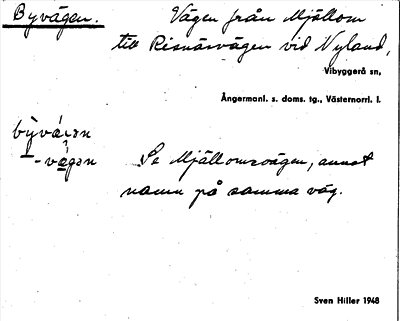 Byvägen. Vägen från Mjällom
till Risnäsvägen vid Nyland,
Vibyggerå sn,
Ångermanl. s. doms. tg., Västernorrl. l.
-vägən Se Mjällomsvägen, annat
namn på samma väg.
Sven Hiller 1948